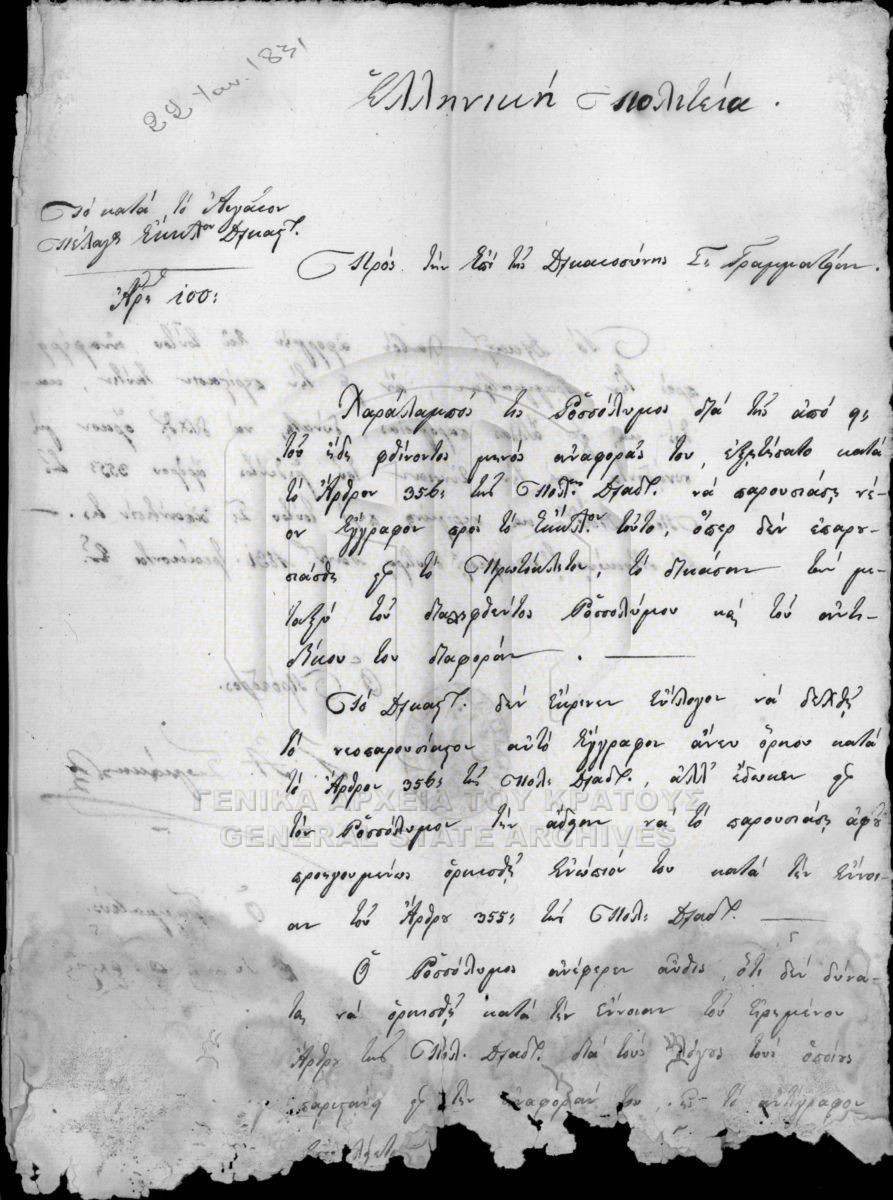 22 Ιαν. 1831
Ἑλληνική Πολιτεία.
Τό κατά τό Αἰγαῖον
Πέλαγος Ἔκκλητον Δικαστ.
Ἀρ. 100:
Πρός τήν ἐπί τῆς Δικαιοσύνης Γραμματείαν.
Χαράλαμπος τις Ῥοσσόλυμος διά τῆς ἀπό 9:
τοῦ ἤδη φθίνοντος μηνός ἀναφορᾶς του, ἐξῃτήσατο κατά
τό Ἄρθρον 356: τῆς Πολ. Διαδ. νά παρουσιάσῃ νέ-
ον ἔγγραφον πρός τό Ἔκκλητον τοῦτο, ὅπερ δέν ἐπαρου-
σιάσθη εἰς τό Πρωτόκλητον, τό δικάσαν τήν με-
ταξύ τοῦ διαληφθέντος Ῥοσσολύμου καί τοῦ ἀντι-
δίκου του διαφοράν.
Τό Δικαστ. δέν ἔκρινεν εὔλογον νά δεχθῇ
τό νεοπαρουσίαστον αὐτό ἔγγραφον ἄνευ ὅρκου κατά
τό Ἄρθρον 356: τῆς Πολ: Διαδ., ἀλλ' ἔδωκεν εἰς
τόν Ῥοσσόλυμον τήν ἄδειαν νά τό παρουσιάσῃ ἀφοῦ
προηγουμένως ὁρκισθῇ ἐνώπιόν του κατά τήν ἔννοι-
αν τοῦ Ἄρθρου 355: τῆς Πολ: Διαδ.
Ὁ Ῥοσσόλυμος ἀνέφερεν αὖθις, ὅτι δέν δύνα-
ται νά ὁρκισθῇ κατά τήν ἔννοιαν τοῦ εἰρημένου
Ἄρθρου τῆς Πολ. Διαδ. διά τούς λόγους τούς ὁποίους
εἰς τήν ἀναφοράν του, τό ἀντίγραφον
ΓΕΝΙΚΑ ΑΡΧΕΙΑ ΤΟΥ ΚΡΑΤΟΥΣ
GENERAL STATE ARCHIVES